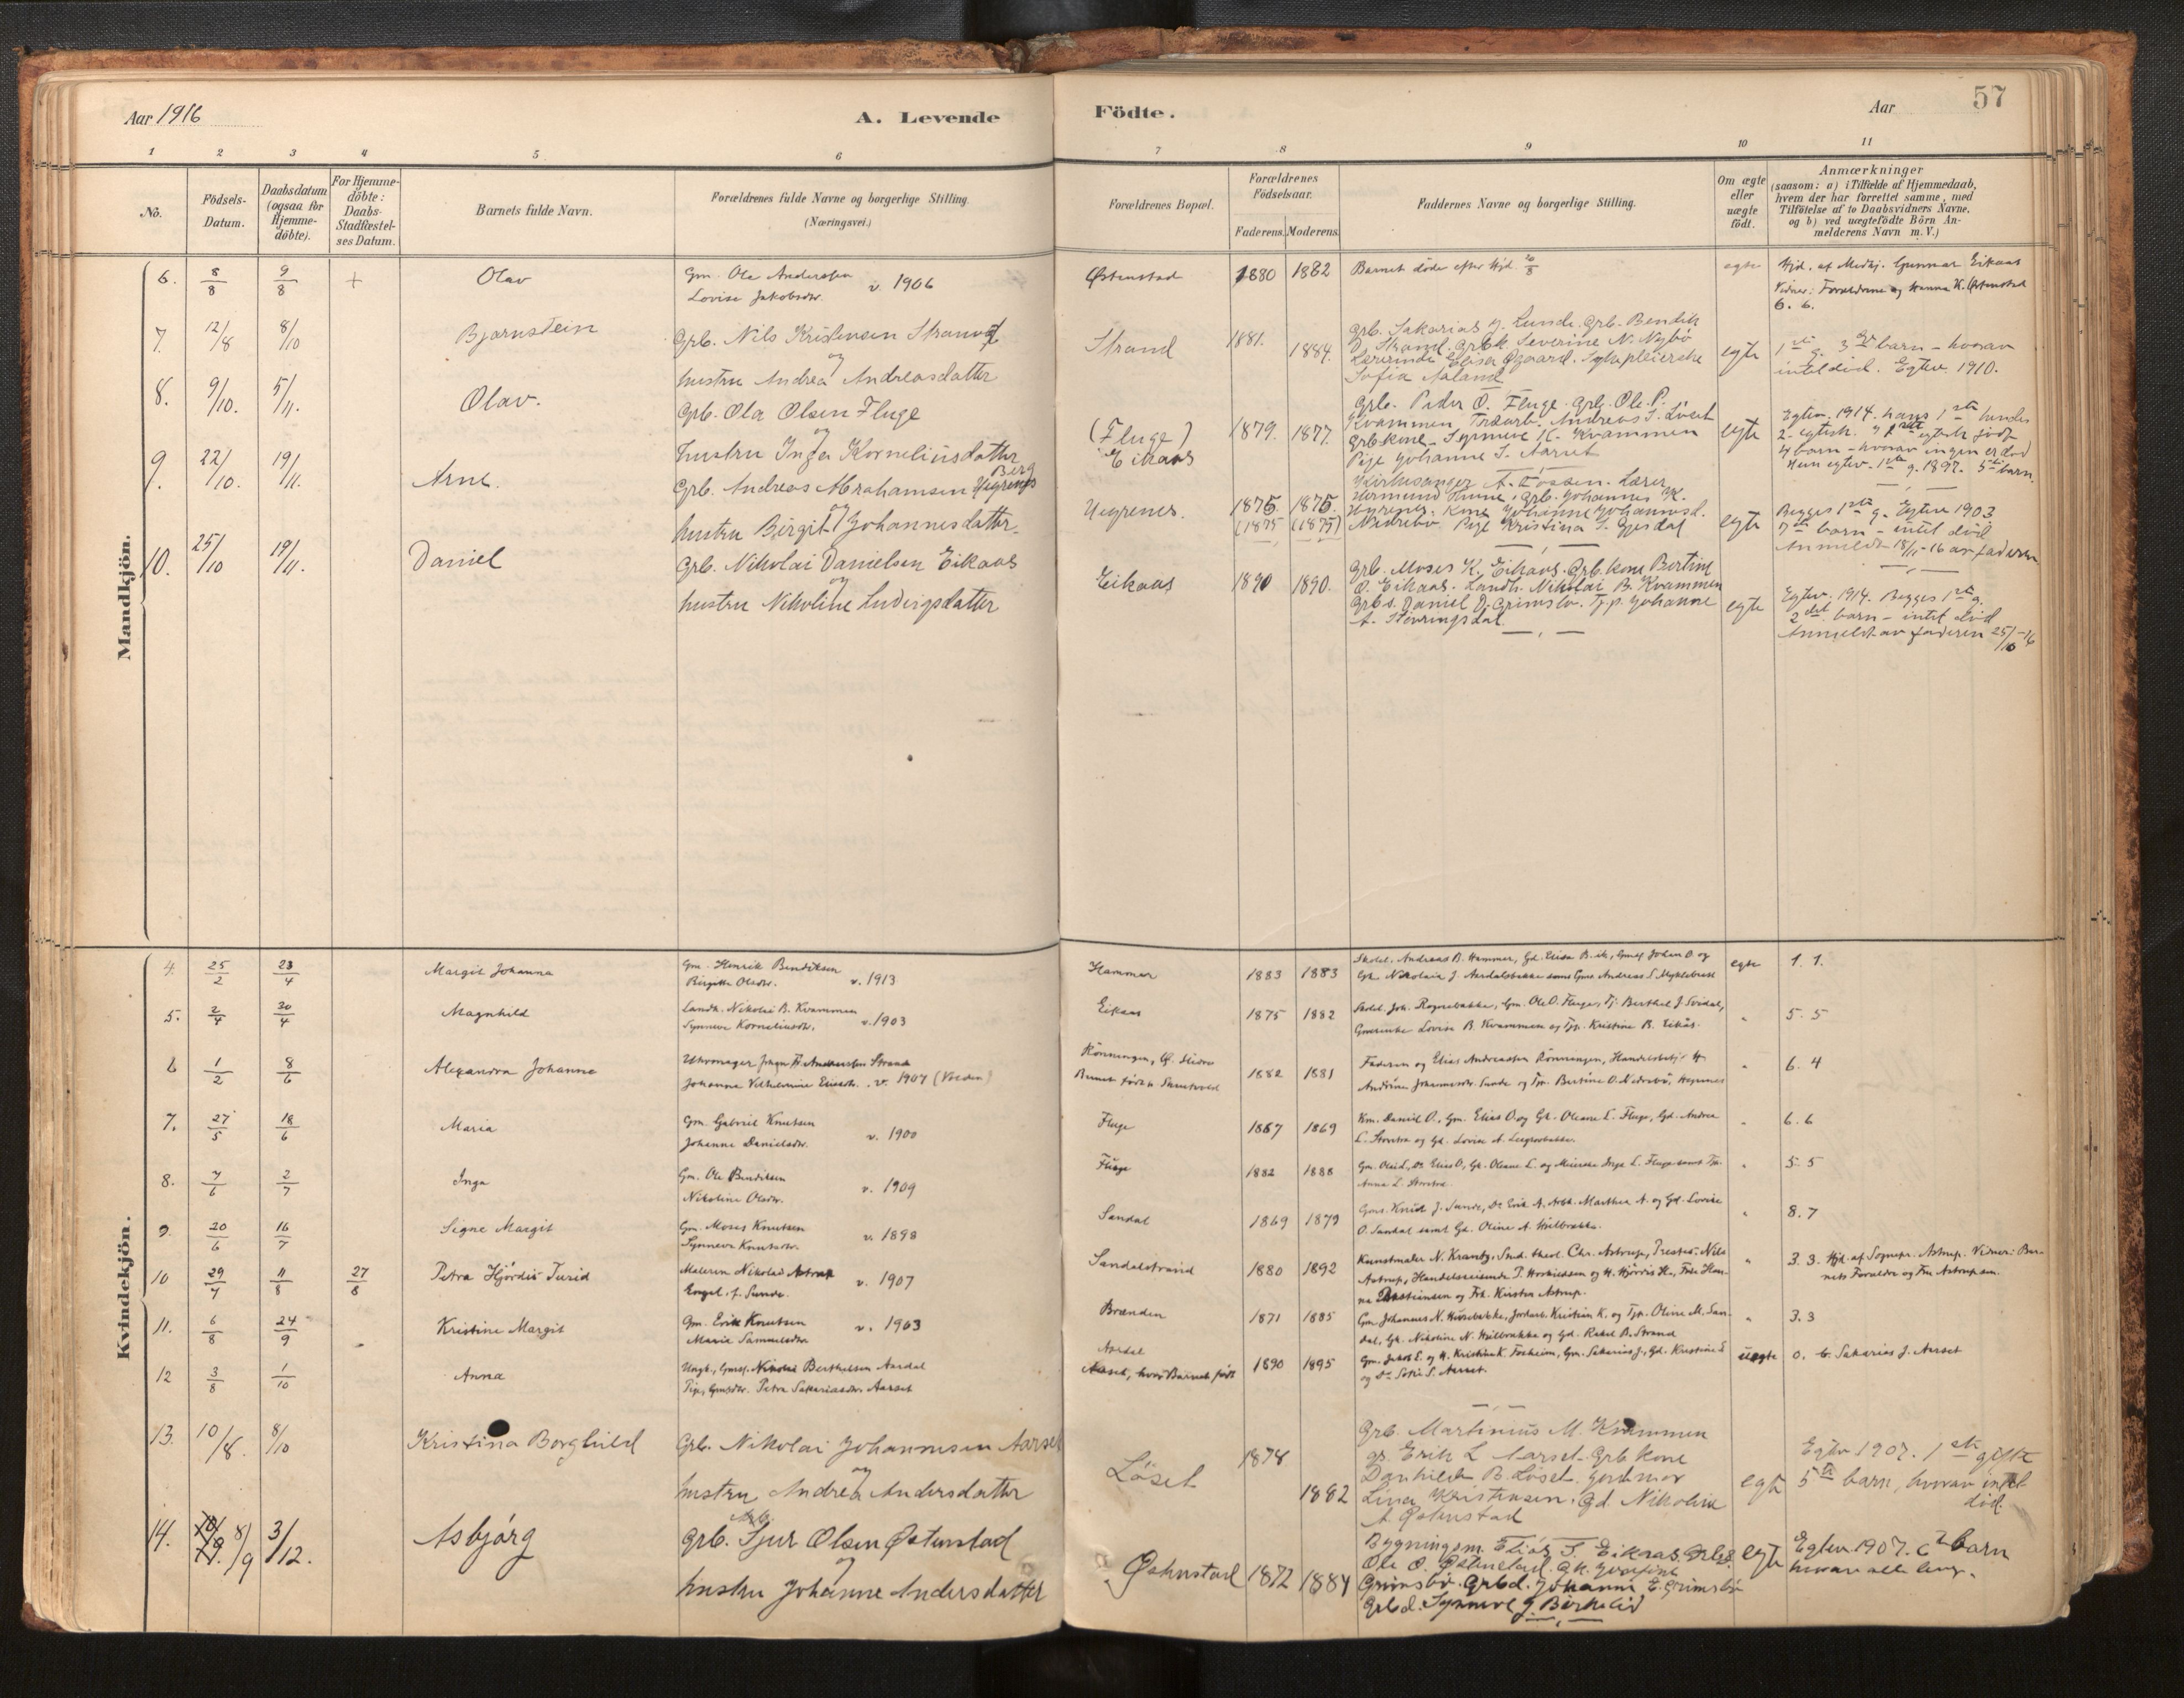 Aar 1916
A. Levende
Födte.
Aar
57
1 2 3 4 5 6 7 8 9 10 11
No.
Födsels-
Datum.
Daabsdatum
(ogsaa for
Hjemme-
döbte).
For Hjemme-
döbte:
Daabs-
Stadfæstel-
ses Datum.
Barnets fulde Navn.
Forældrenes fulde Navne og borgerlige Stilling.
(Næringsvei.)
Forældrenes Bopæl.
Forældrenes
Födselsaar.
Faderens. Moderens.
Faddernes Navne og borgerlige Stilling.
Om ægte
eller
uægte
födt.
Anmærkninger
(saasom: a) i Tilfælde af Hjemmedaab,
hvem der har forrettet samme, med
Tilföielse af to Daabsvidners Navne,
og b) ved uægtefödte Börn An-
melderens Navn m. V.)
Mandkjön.
6. 8/8 9/8 + Olav
Gm. Ole Anderssen
Lovise Jakobsdr. v. 1906
Østenstad 1880 1882
Barnet döde efter Hjd.
egte
Hjd. af Medhj. Gunnar Eikaas
Vidner: Forældrene og Hanna K. Østenstad
6. 6.
7. 12/8 8/10 Bjarnstein
Grb. Nils Kristensen Strand
og
hustru Andrea Andreasdatter
Strand 1881. 1884.
Grb. Sakarias J. Lunde. Grb. Bendik
D. Strand. Grbk. Severine N. Nybö
Lærerinde Elisa Øgaard. Sykepleierske
Sofia Aaland
egte
1ste g. 3die barn - hvorav
intet död. Egtev. 1910.
8. 9/10. 5/11. Olav.
Grb. Ola Olsen Fluge
og
hustru Inga Korneliusdatter
(Fluge)
Eikaas
1879. 1877.
Grb. Peder O. Fluge. Grb. Ole P.
Kvammen Andreas S. Löset
Grbkone Synneve K. Kvammen
Pige Johanne S. Aarset
egte
Egtev. 1914. hans 1ste hendes
2. egtesk.
4 barn - hvorav ingen er död
Hun egtev. 1ste g. 1897. 5te barn.
9. 22/10. 19/11. Arne.
Grb. Andreas Abrahamsen Berg
Hegrenes
og
hustru Birgit Johannesdatter.
Hegrenes. 1875. 1875.
(1875 (1875)
Kirkesanger A. Fossen. Lærer
Grb. Johannes K.
Hegrenes. Kone Johanne Johannesd.
Nedrebö. Pige Kristina S. Gjesdal
egte
Begges 1ste g. Egtev. 1903
7de barn - intet död
Anmeldt 18/11-16 av faderen
10. 25/10 19/11. Daniel
Grb. Nikolai Danielsen Eikaas
og
hustru Nikoline Ludvigsdatter
Eikaas 1890 1890.
Grb. Moses K. Eikaas. Grb. kone Bertine
O. Eikaas. Landh. Nikolai B. Kvammen
Grbs. Daniel D. Grimsbo. Tj.p. Johanne
A. Stövringsdal
egte
Egtev. 1914. Begges 1ste g.
2det barn - intet död
Anmeldt av faderen 25/10-16
Kvindekjön.
4. 25/2 23/4 Margit Johanna
Gm. Henrik Bendiksen
Birgitte Olsdr. v. 1913
Hammer 1883 1883
Skolel. Andreas B. Hammer, Gd. Elisa B. ib,
Gk. Nikolaia J. Aardalsbakke samt Gms Andreas S. Myklebust
egte 1. 1.
5. 2/4 30/4 Magnhild
Landh. Nikolai B. Kvammen
Synneva Korneliusdr. v. 1903
Eikaas 1875 1882
Skolel. Joh. Rognebakke, Gm. Ole O. Fluge, Tj. Berthel J. Svidal,
Guvernante Lovise B. Kvammen og Tjp. Kristine B. Eikås.
" 5. 5
6 1/2 8/6 Alexandra Johanne
Uhrmager Johan Fr. Anderssen Strand
Johanne Vilhelmine Eliasdr. v. 1907 (Volden)
Rönningen,
Barnet födt
1882 1881
Faderen og Elias Andreassen Rönningen,
Andrine Johannesdr. Sunde og Tjp. Bertine O. Nedrebö, Hegrenes
" 6. 4
7. 27/5 18/6 Maria
Gm. Gabriel Knutsen
Johanne Danielsdr. v. 1900
Fluge 1867 1869
Km. Daniel O., Gm. Elias O. og Gk. Oleane L. Fluge, Gd. Andrea
L. og Gd. Lovise A.
" 6. 6
8. 7/6 2/7 Inga
Gm. Ole Bendiksen
Nikoline Olsdr. v. 1909
Fluge 1882 1888
Gm. Ole L., Do Elias O, Gk. Oleane L. og Meierske Inga L. Fluge samt Tjp.
Anna L.
" 5. 5
9. 20/6 16/7 Signe Margit
Gm. Moses Knutsen
Synneva Knutsdr. v. 1898
Sandal 1869 1879
Gms. Knut J. Sunde, Do Erik A. Marthea A. og Gd. Lovise
O. Sandal samt Gd. Oline A. Hjelbrekke.
" 8. 7
10 29/4 11/8 27/8 Petra Hjördis Turid
Maleren Nikolai Astrup
Engel f. Sunde. v. 1907
Sandalstrand 1880 1892
Kunstmaler N. Krantz, Stud. theol. Chr. Astrup, Præstes. Nils
Astrup, Handelsreisende
og Frk. Kirsten Astrup.
" 3. 3. Hjd. af Sognepr. Astrup. Vidner: Bar-
nets Forældre og Fru Astrup sen.
11. 6/8 24/9 Kristine Margit
Gm. Erik Knutsen
Marie Samuelsdr. v. 1903
Brænden 1871 1885
Gm. Johannes N. Husebakke, Jordarb. Kristian K. og Tjp. Oline M. San-
dal, Gk. Nikoline N. Hjelbrekke og Gd. Rakel B. Strand
" 3. 3
12 3/8 1/10 Anna
Ungk., Gmss. Nikolai Berthelsen Aardal
Pige, Gmsdr. Petra Sakariasdr. Aarset
Aardal
Aarset, hvor Barnet födt
1890 1895
Gm. Jakob E. og H. Kristine K. Forheim, Gm. Sakarias J., Gd. Kristine S
og Do Sofie S. Aarset.
uegte 0. b. Sakarias J. Aarset
13. 10/8. 8/10 Kristina Borghild
Grb. Nikolai Johannesen Aarset
og
hustru Andrea Andersdatter
Löset 1878 1882
Grb. Martinius M. Kvammen
gs. Erik L. Aarset. Grb kone
Danhild B. Löset. Jordmor
Lina Kristensen. Gd. Nikoline
A. Østenstad
egte
Egtev 1907. 1ste gifte
5te barn, hvorav intet
död.
14. 8/9 3/12. Asbjörg
Grb. Sjur Olsen Østenstad
og
hustru Johanne Andersdatter
Østenstad 1872 1884
Bygningsm. Elias T. Eikaas. Grbs.
Ole O. Østenstad. Gk. Josefine
Grimsbö. Grbd. Johanne E. Grimsbö
Grbd. Synneve J. Birkelid
egte
Egtev. 1907. barn
hvorav alle lever.